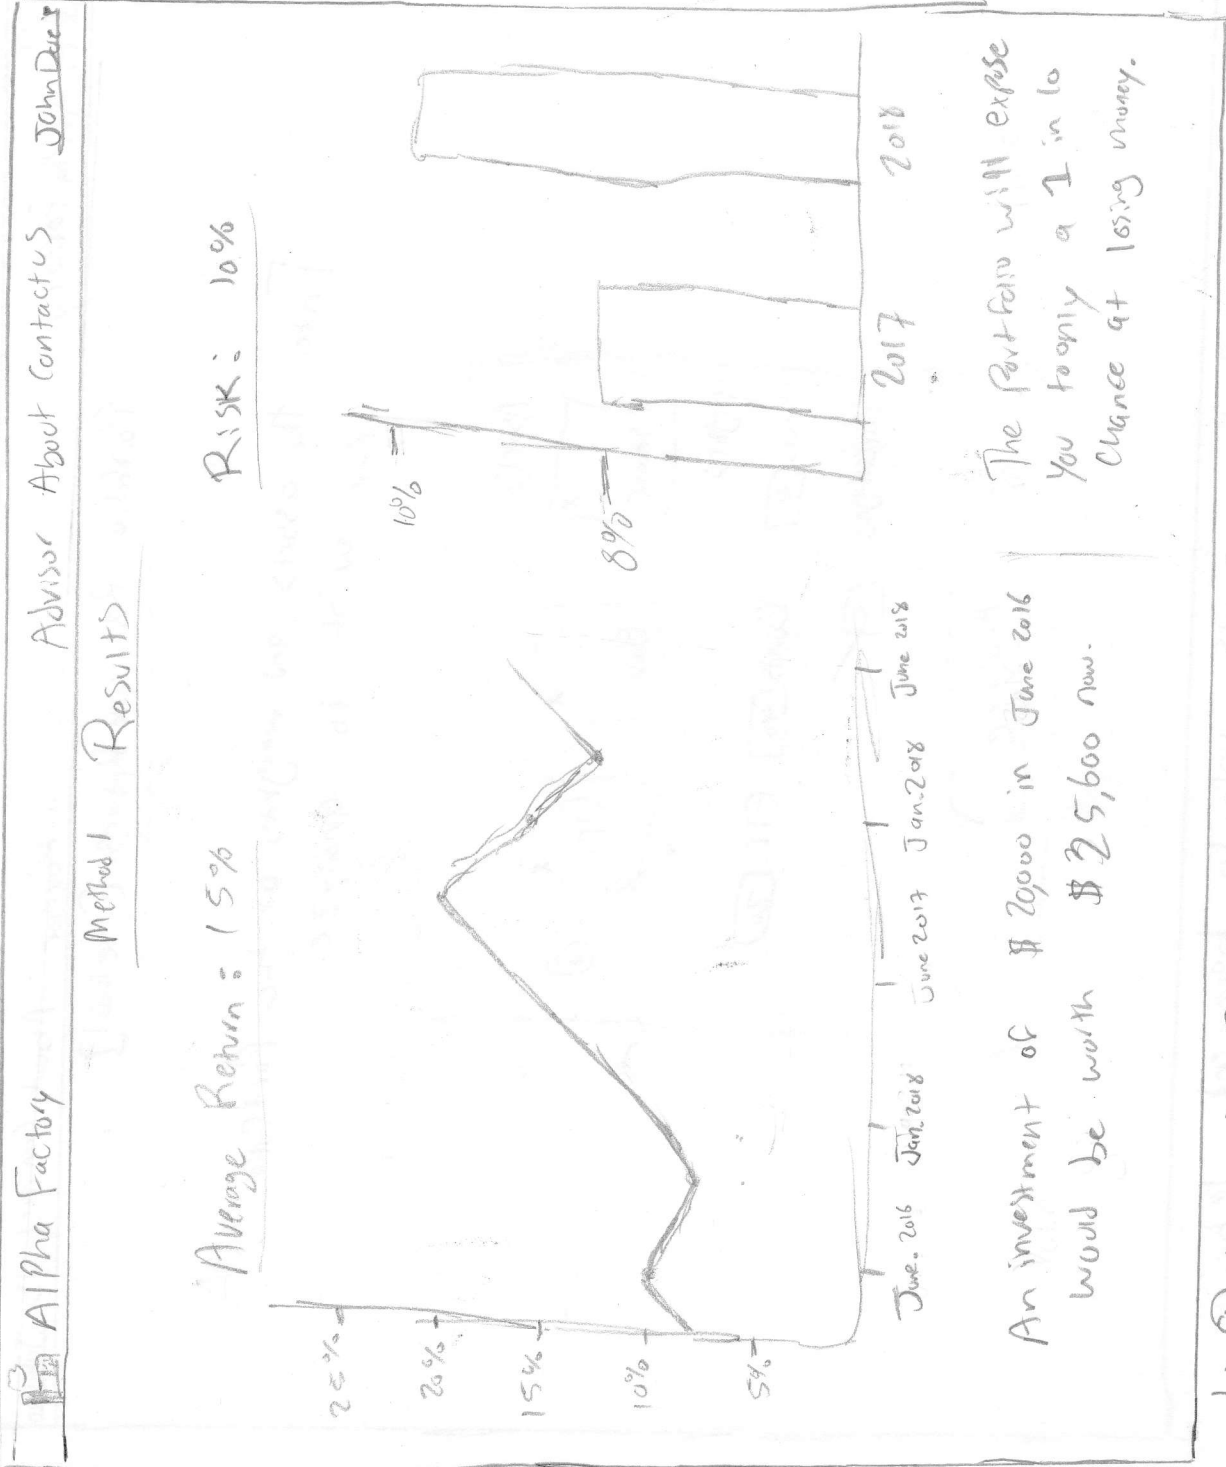 Alpha Factory Advisor About Contact us John Doe
Method 1 Results
Average Return: 15%
25%
20%
15%
10%
5%
June. 2016 Jan. 2018 June 2017 Jan. 2018 June 2018
An investment of $ 20,000 in June 2016
would be worth $25,600 now.
Risk: 10%
10%
8%
2017 2018
The Portfolio will expose
you to only a 1 in 10
Chance at losing money.